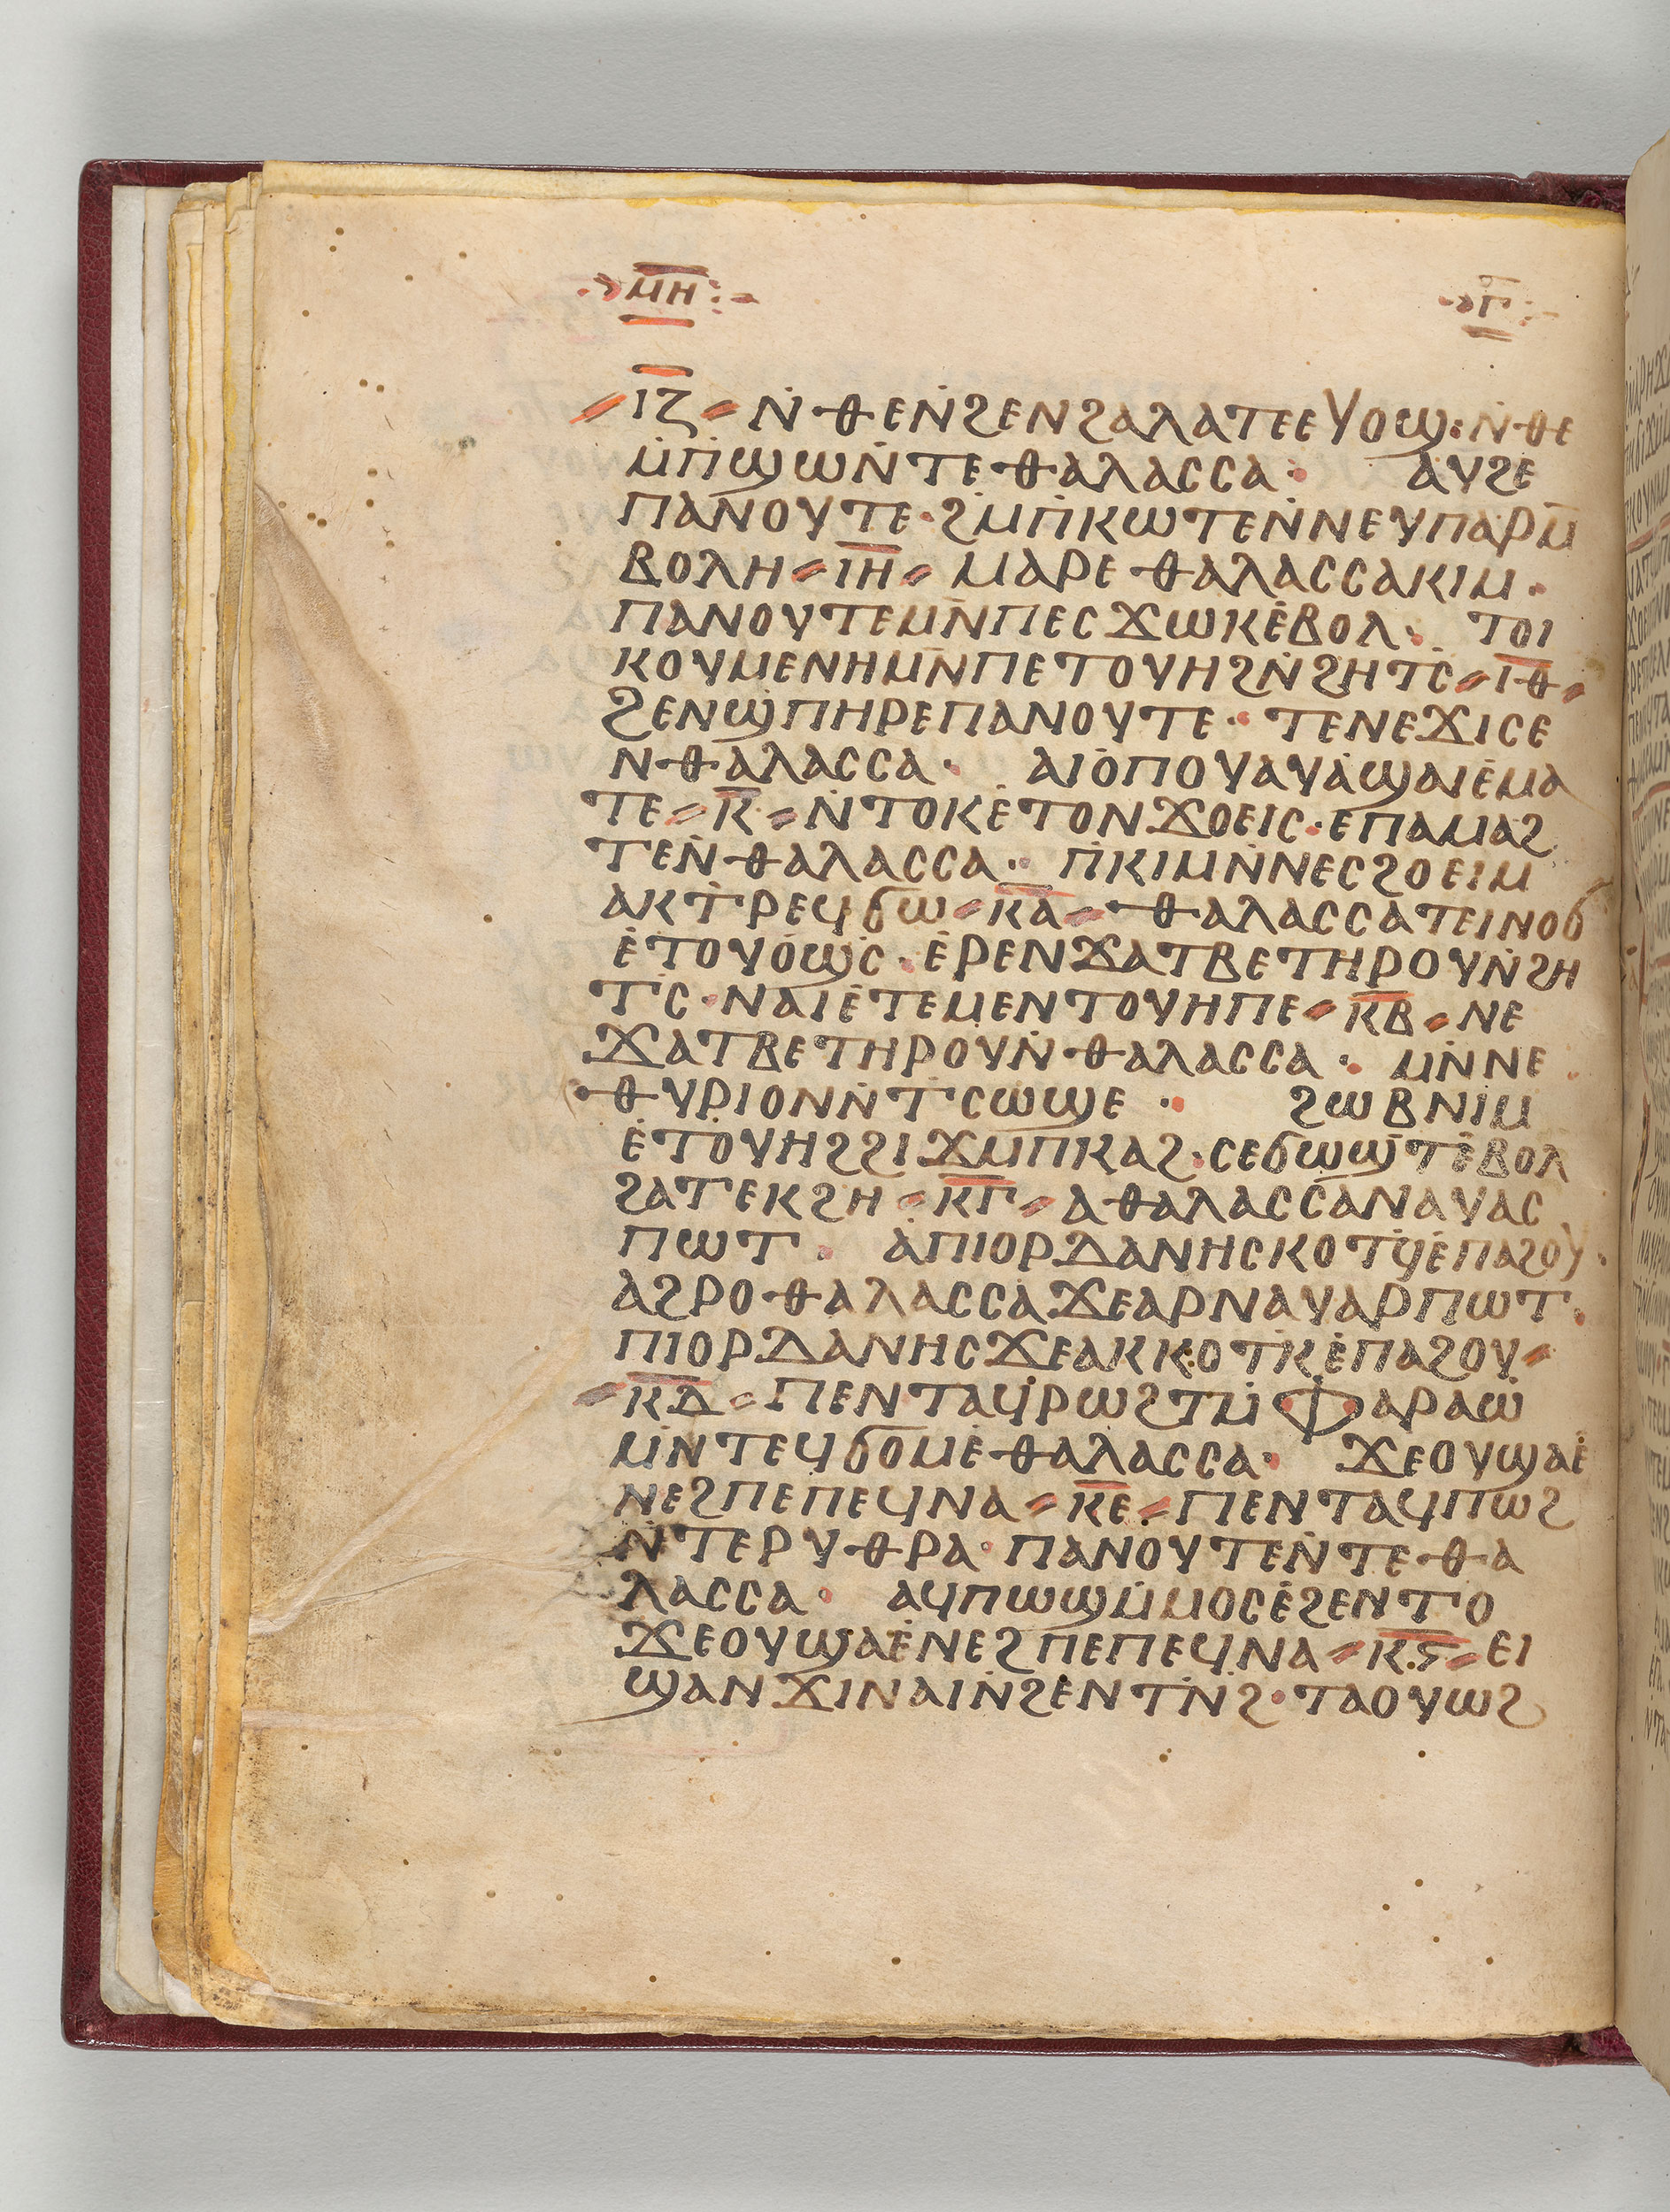 ⲙⲏ ⲅ
ⲓⲍ ⲛ̇ⲑⲉⲛ̇ϩⲉⲛϩⲁⲗⲁⲧⲉⲉⲩⲟϣ· ⲛ̇ⲑⲉ
ⲙ̇ⲡ̇ϣⲱⲛ̇ⲧⲉⲑⲁⲗⲁⲥⲥⲁ· ⲁⲩϩⲉ
ⲡⲁⲛⲟⲩⲧⲉ·ϩⲙ̇ⲡ̇ⲕⲱⲧⲉⲛ̇ⲛⲉⲩⲡⲁⲣⲙ̄
ⲃⲟⲗⲏ ⲓⲏ ⲙⲁⲣⲉⲑⲁⲗⲁⲥⲥⲁⲕⲓⲙ·
ⲡⲁⲛⲟⲩⲧⲉⲙⲛ̇ⲡⲉⲥϫⲱⲕⲉ̇ⲃⲟⲗ· ⲧⲟⲓ
ⲕⲟⲩⲙⲉⲛⲏⲙⲛ̇ⲡⲉⲧⲟⲩⲏϩⲛ̇ϩⲏⲧⲥ̇ ⲓⲑ
ϩⲉⲛϣ̇ⲡⲏⲣⲉⲡⲁⲛⲟⲩⲧⲉ· ⲧⲉⲛⲉϫⲓⲥⲉ
ⲛⲑⲁⲗⲁⲥⲥⲁ· ⲁⲓⲟ̇ⲡⲟⲩⲁⲩⲁ̇ϣⲁⲓⲉ̇ⲙⲁ
ⲧⲉ ⲕ ⲛ̇ⲧⲟⲕⲉ̇ⲧⲟⲛϫⲟⲉⲓⲥ·ⲉⲡⲁⲙⲁϩ
ⲧⲉⲛ̇ⲑⲁⲗⲁⲥⲥⲁ· ⲡ̇ⲕⲓⲙⲛ̇ⲛⲉⲥϩⲟⲉⲓⲙ
ⲁⲕⲧ̇ⲣⲉϥϭⲱ ⲕⲁ ⲑⲁⲗⲁⲥⲥⲁⲧⲉⲓⲛⲟϭ
ⲉ̇ⲧⲟⲩⲟ̇ϣⲥ̇·ⲉ̇ⲣⲉⲛϫⲁⲧⲃⲉⲧⲏⲣⲟⲩⲛ̇ϩⲏ
ⲧⲥ̇·ⲛⲁⲓⲉ̇ⲧⲉⲙⲉⲛⲧⲟⲩⲏⲡⲉ ⲕⲃ ⲛⲉ
ϫⲁⲧⲃⲉⲧⲏⲣⲟⲩⲛ̇ⲑⲁⲗⲁⲥⲥⲁ· ⲙⲛ̇ⲛⲉ
ⲑⲩⲣⲓⲟⲛⲛ̇ⲧ̇ⲥⲱϣⲉ· ϩⲱⲃⲛⲓⲙ
ⲉ̇ⲧⲟⲩⲏϩϩⲓϫⲙⲡⲕⲁϩ·ⲥⲉϭⲱϣ̇ⲧⲉ̇ⲃⲟⲗ
ϩⲁⲧⲉⲕϩⲏ ⲕⲅ ⲁⲑⲁⲗⲁⲥⲥⲁⲛⲁⲩⲁⲥ
ⲡⲱⲧ· ⲁ̇ⲡⲓⲟⲣⲇⲁⲛⲏⲥⲕⲟⲧϥ̇ⲉ̇ⲡⲁϩⲟⲩ·
ⲁϩⲣⲟⲑⲁⲗⲁⲥⲥⲁϫⲉⲁⲣⲛⲁⲩⲁⲣⲡⲱⲧ·
ⲡⲓⲟⲣⲇⲁⲛⲏⲥϫⲉⲁⲕⲕⲟⲧⲕ̇ⲉ̇ⲡⲁϩⲟⲩ
ⲕⲇ ⲡⲉⲛⲧⲁϥⲣⲱϩⲧⲙ̇ⲫⲁⲣⲁⲱ
ⲙⲛ̇ⲧⲉϥϭⲟⲙⲉ̇ⲑⲁⲗⲁⲥⲥⲁ· ϫⲉⲟⲩϣⲁⲉ̇
ⲛⲉϩⲡⲉⲡⲉϥⲛⲁ ⲕⲉ ⲡⲉⲛⲧⲁϥⲡⲱϩ
ⲛ̇ⲧⲉⲣⲩⲑⲣⲁ·ⲡⲁⲛⲟⲩⲧⲉⲛ̇ⲧⲉⲑⲁ
ⲗⲁⲥⲥⲁ· ⲁϥⲡⲱϣⲙ̇ⲙⲟⲥⲉ̇ϩⲉⲛⲧⲟ
ϫⲉⲟⲩϣⲁⲉ̇ⲛⲉϩⲡⲉⲡⲉϥⲛⲁ ⲕⲋ ⲉⲓ
ϣⲁⲛϫⲓⲛⲁⲓⲛ̇ϩⲉⲛⲧⲛ̇ϩ·ⲧⲁⲟⲩⲱϩ